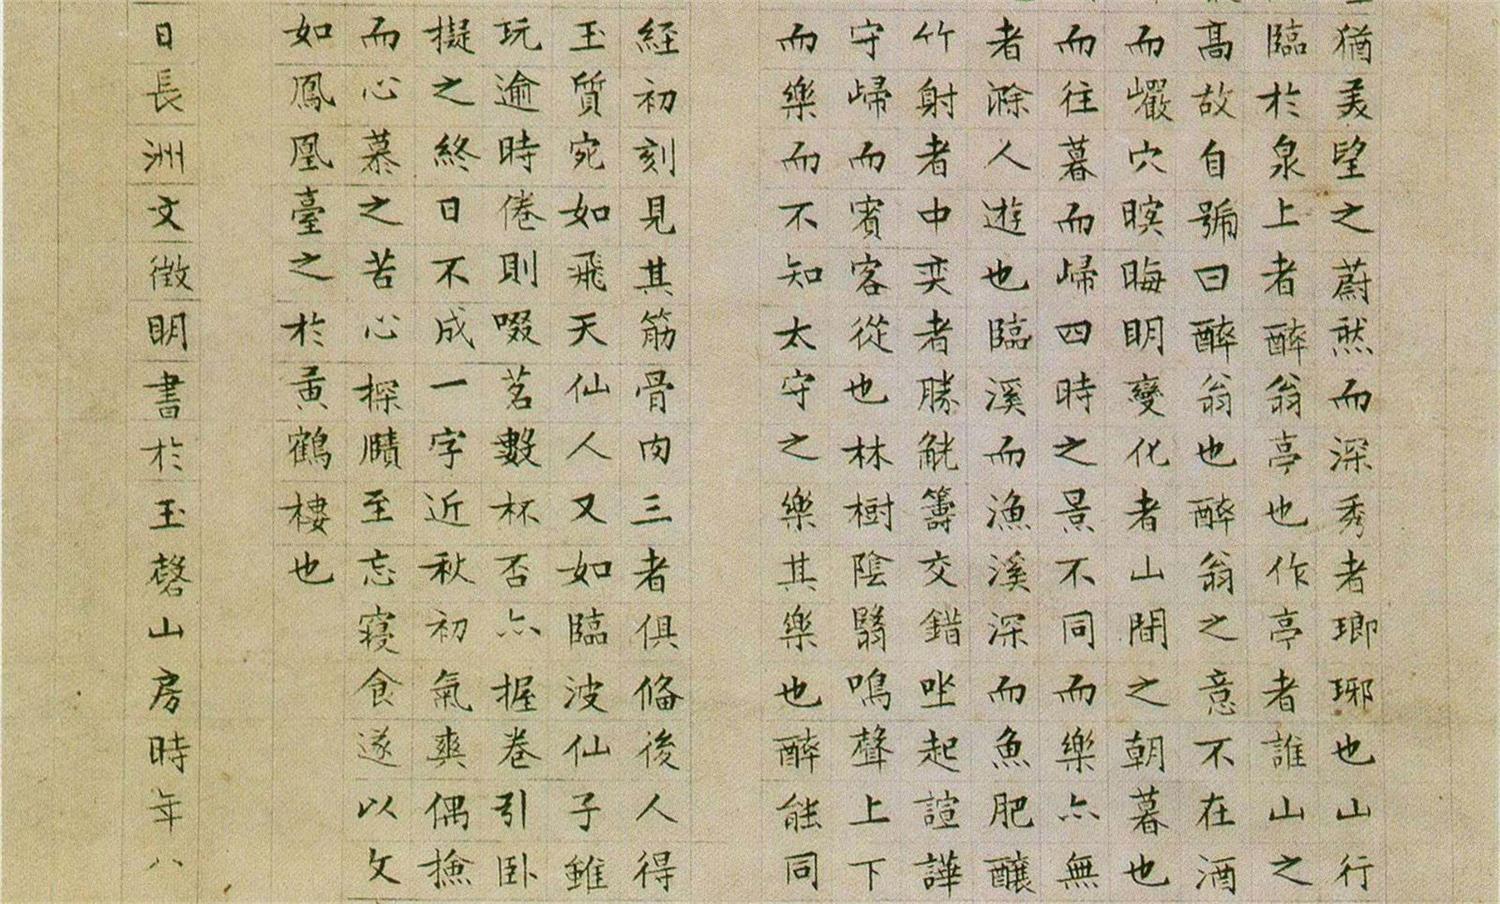 猶美望之蔚然而深秀者瑯琊也山行
臨於泉上者醉翁亭也作亭者誰山之
高故自號曰醉翁也醉翁之意不在酒
而巖穴暝晦明變化者山間之朝暮也
而往暮而歸四時之景不同而樂亦無
者滁人遊也臨溪而漁溪深而魚肥釀
竹射者中奕者勝觥籌交錯坐起諠譁
守歸而賓客從也林樹陰翳鳴聲上下
而樂而不知太守之樂其樂也醉能同
經初刻見其筋骨肉三者俱備後人得
玉質宛如飛天仙人又如臨波仙子雖
玩逾時倦則啜茗數杯否亦握卷引卧
擬之終日不成一字近秋初氣爽偶撿
而心慕之苦心探賾至忘寢食遂以文
如鳳凰臺之於黃鶴樓也
日長洲文徵明書於玉磬山房時年八